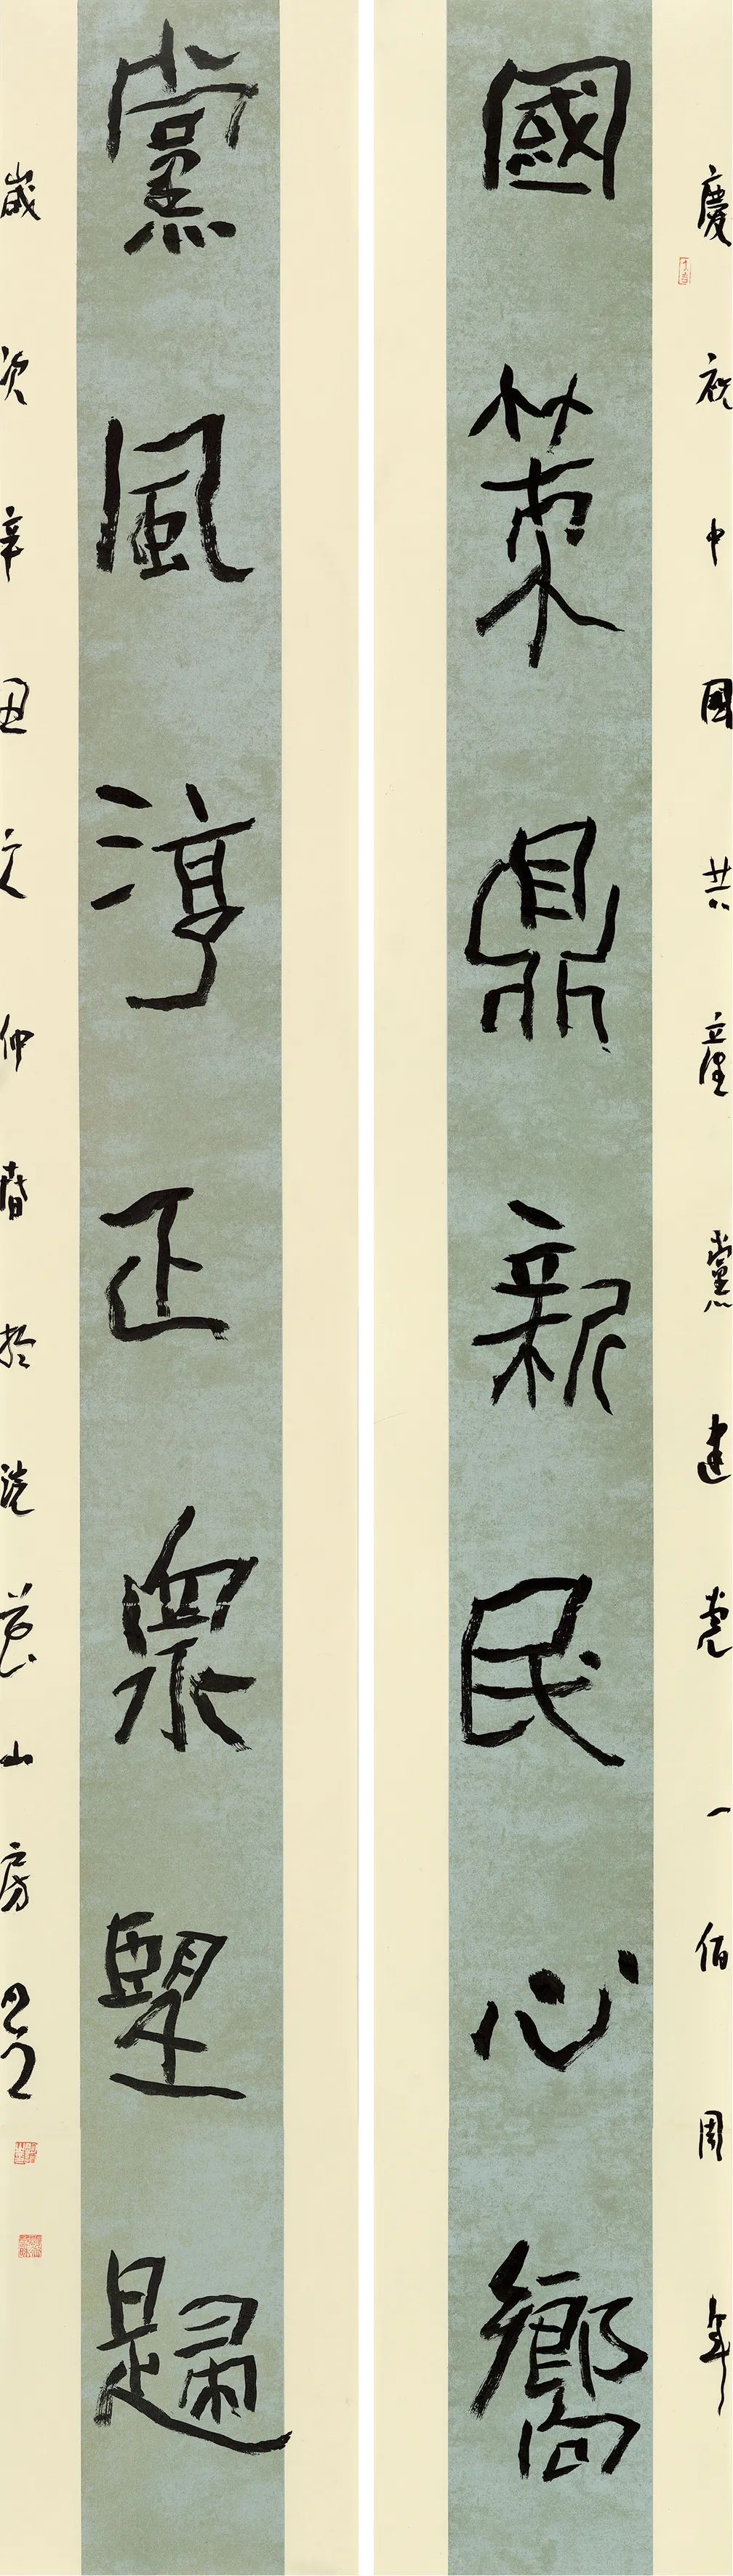 慶祝中國共產黨建党一佰周年
國策鼎新民心嚮
黨風淳正衆望歸
歲次辛丑之仲春於洗花山房